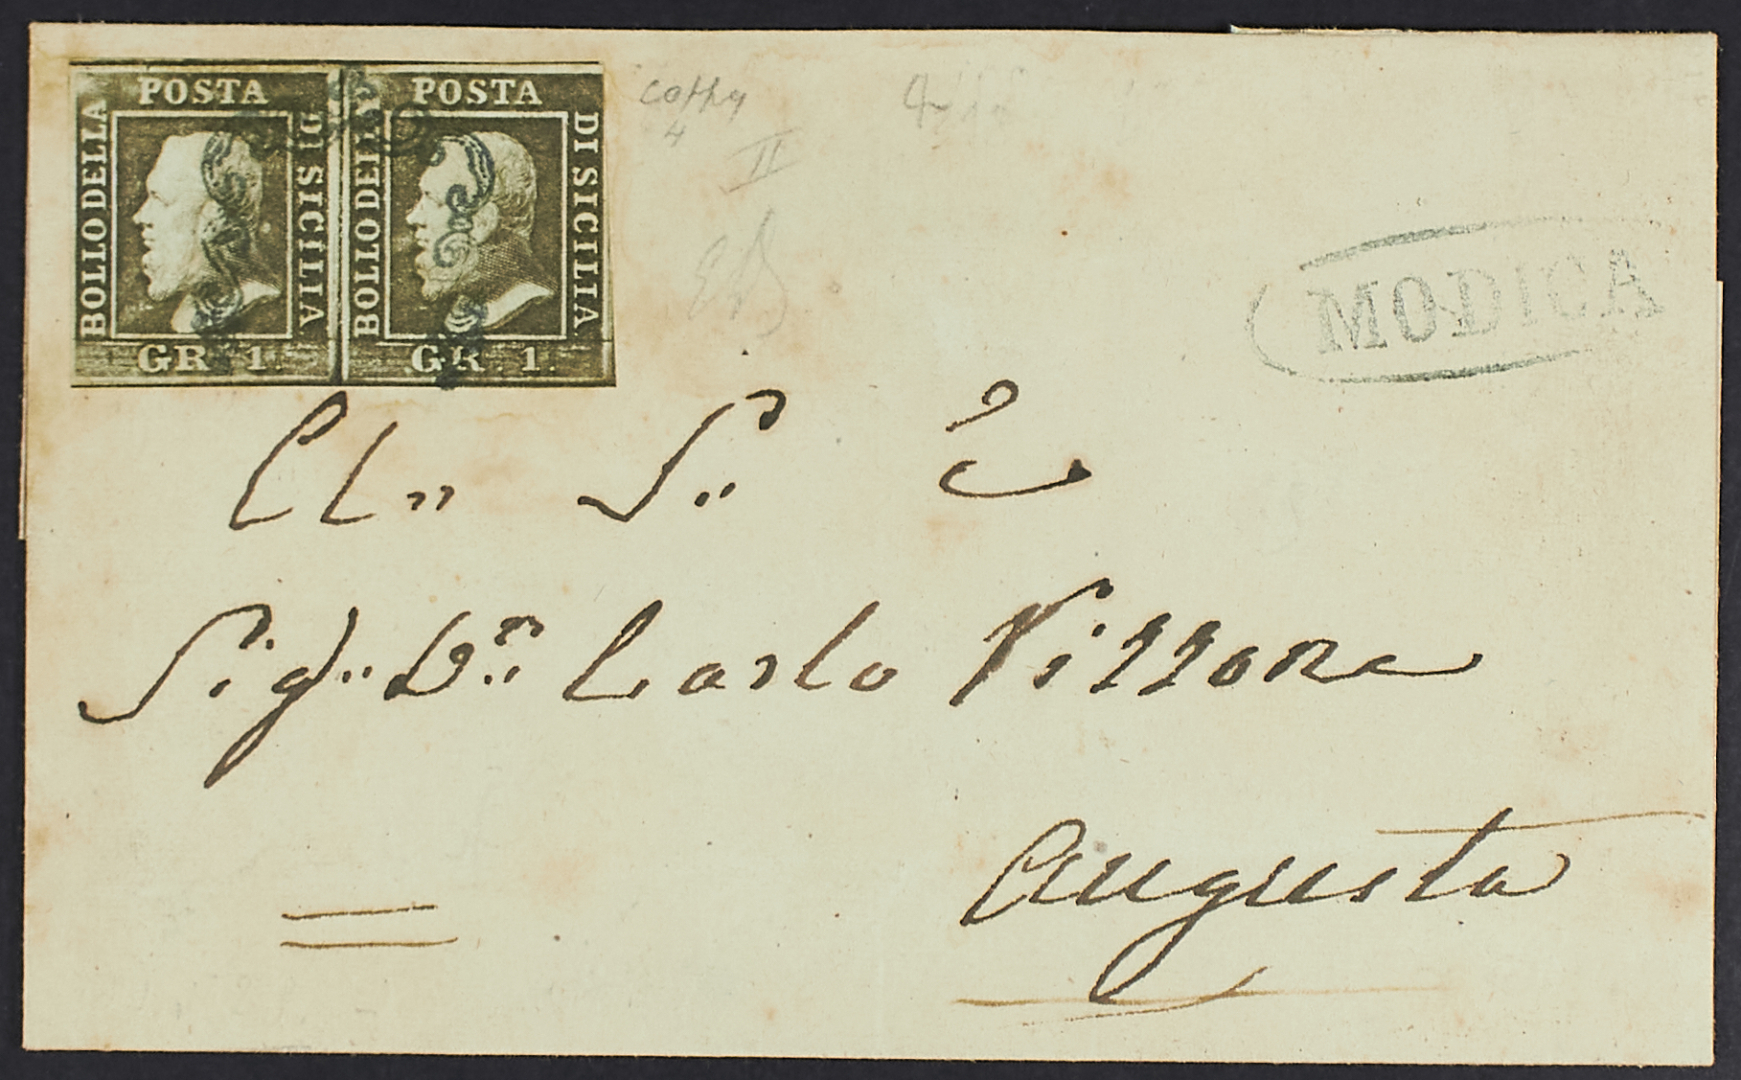 POSTA
BOLLO DELLA
DI SICILIA
GR. 1.
POSTA
BOLLO DELLA
DI SICILIA
GR. 1.
4
II
MODICA
Sig.. D.n Carlo Vizzona
Augusta